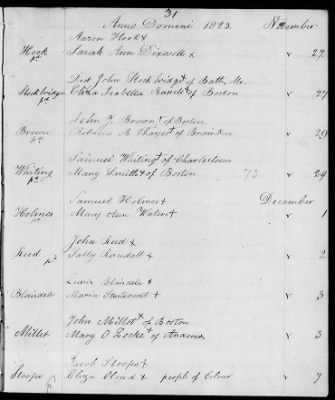 31
Anno Domini 1823. November
Aaron Hook +
Hook Sarah Ann + v 27
pd
Doct John Stockbridge + of Bath, Me.
Stockbridge Eliza Isabella of Boston v 27
pd
John J. Brown + of Boston
Brown Rebecca B. Thayer + of Braintree v 29
pd
Samuel Whiting + of Charlestown
Whiting Mary Smith + of Boston 73 v 29
pd
Samuel Holmes + December
Holmes Mary Ann Waters + v 1
pd
John Reed +
Reed Sally Randall + v 2
pd
Lewis Blaisdell +
Blaisdell Maria Sturtevant + v 3
John Millet + of Boston
Millet Mary O Locke + of Andover v 3
Jacob Stoops +
Stoops Eliza Cloud + people of Colour v 7